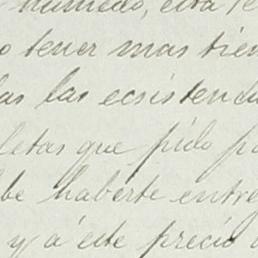 numero, esta re
o tener mas tien
las las ecsistencia
letas que pido pa
be haberte entre
y á este precio